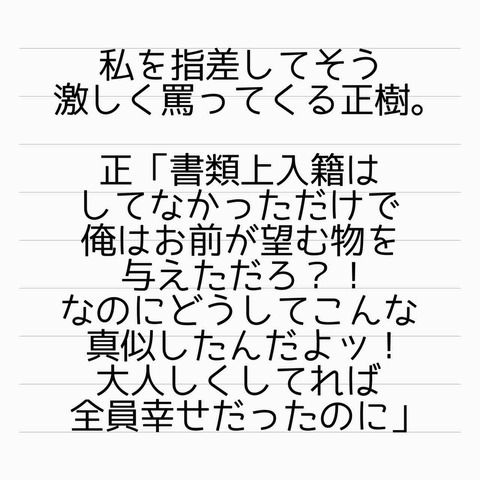 私を指差してそう
激しく罵ってくる正樹。
正「書類上入籍は
してなかっただけで
俺はお前が望む物を
与えただろ？！
なのにどうしてこんな
真似したんだよッ！
大人しくしてれば
全員幸せだったのに」